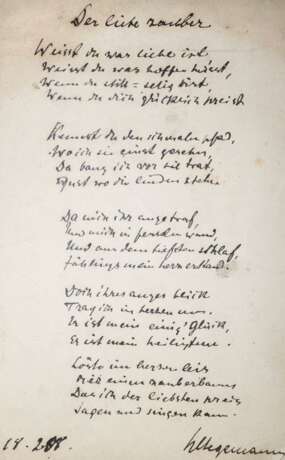 Der liebe zauber
Weisst du was liebe ist
Weisst du was hoffen heisst,
Wenn du still = selig bist,
Wenn du dich glücklich preist
Kennst du den schmalen pfad,
Wo ich sie einst gesehn,
Da bang ich vor sie trat,
Dort wo die linden stehn.
Da mich ihr auge traf,
Und mich in fesseln wand,
Und aus dem tiefsten schlaf,
Jählings mein herz erstand.
Doch ihres auges blick
Trag ich im herzen nun.
Er ist mein einzig' Glück,
Er ist mein
Löste im herzen leis
einen zauberbann
Das ich der liebsten preis
Sagen und singen kann.
18.2.